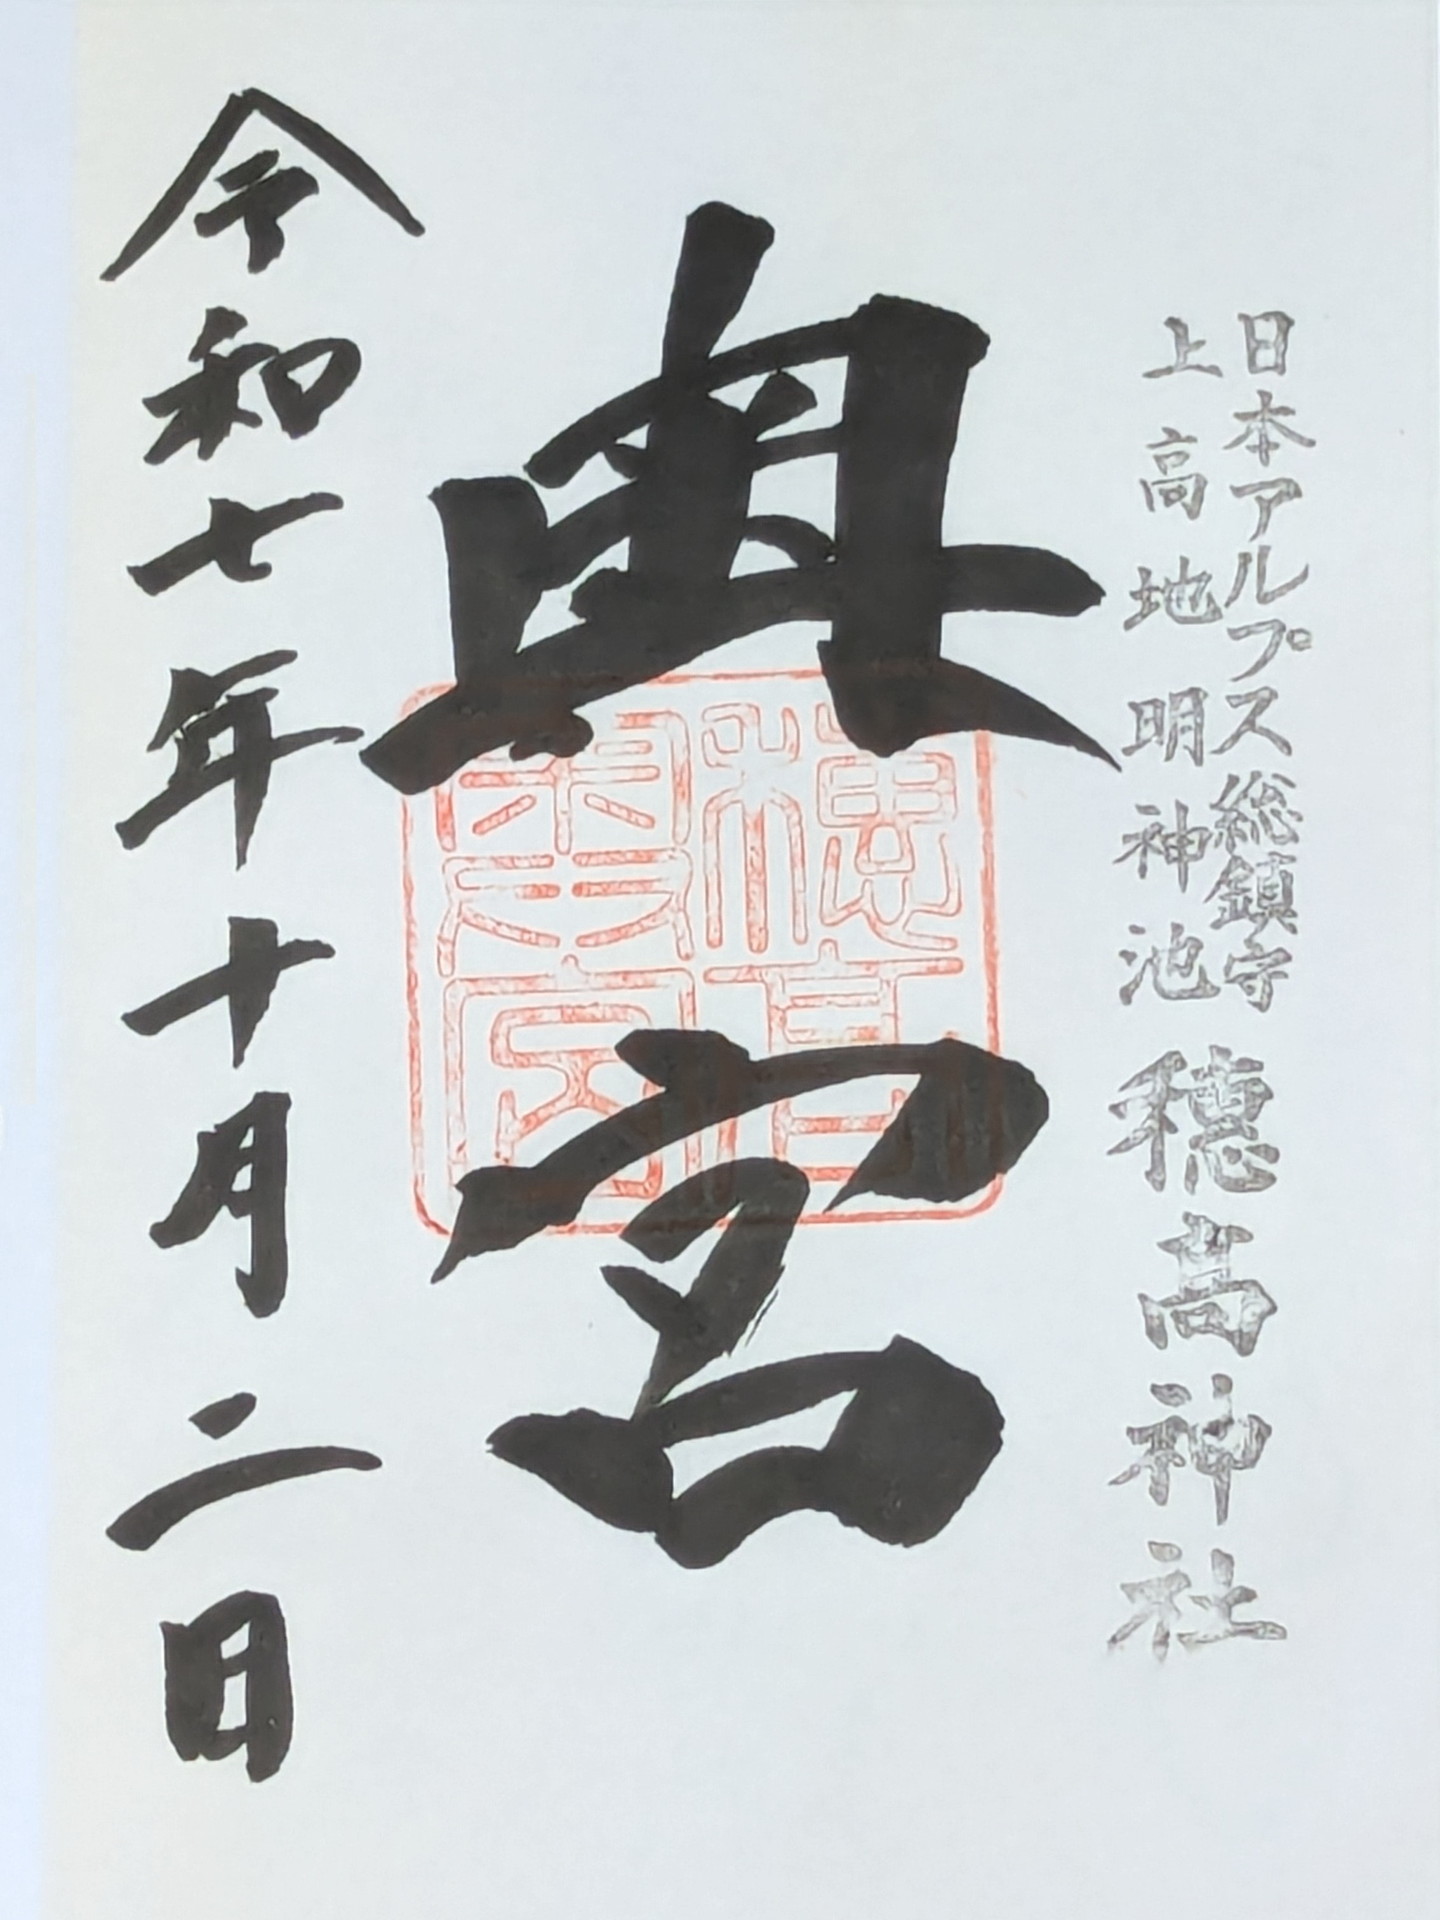 日本アルプス総鎮守
上高地明神池
穂高神社
奥宮
令和七年十月二日